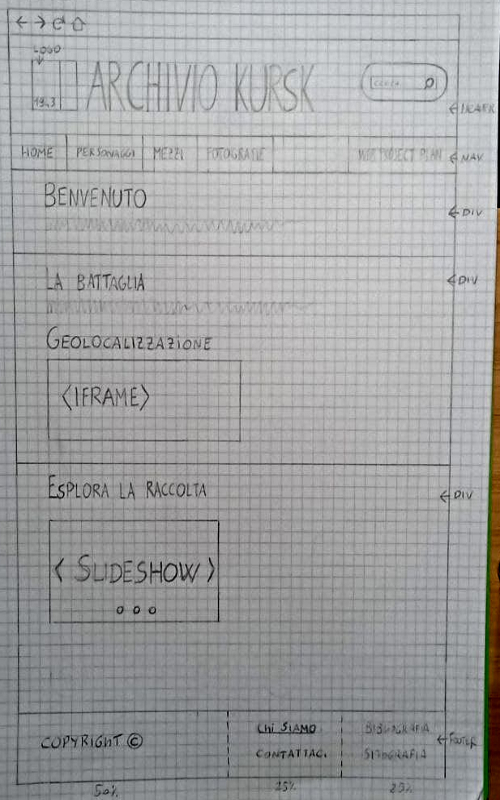 LOGO
1943 ARCHIVIO KURSK
CERCA
HOME PERSONAGGI MEZZI FOTOGRAFIE WEB PROJECT PLAN ← NAV
BENVENUTO
← DIV
LA BATTAGLIA ← DIV
GEOLOCALIZZAZIONE
<IFRAME>
ESPLORA LA RACCOLTA ← DIV
< SLIDESHOW >
COPYRIGHT © CHI SIAMO BIBLIOGRAFIA
← FOOTER
CONTATTACI SITOGRAFIA
50% 25% 25%